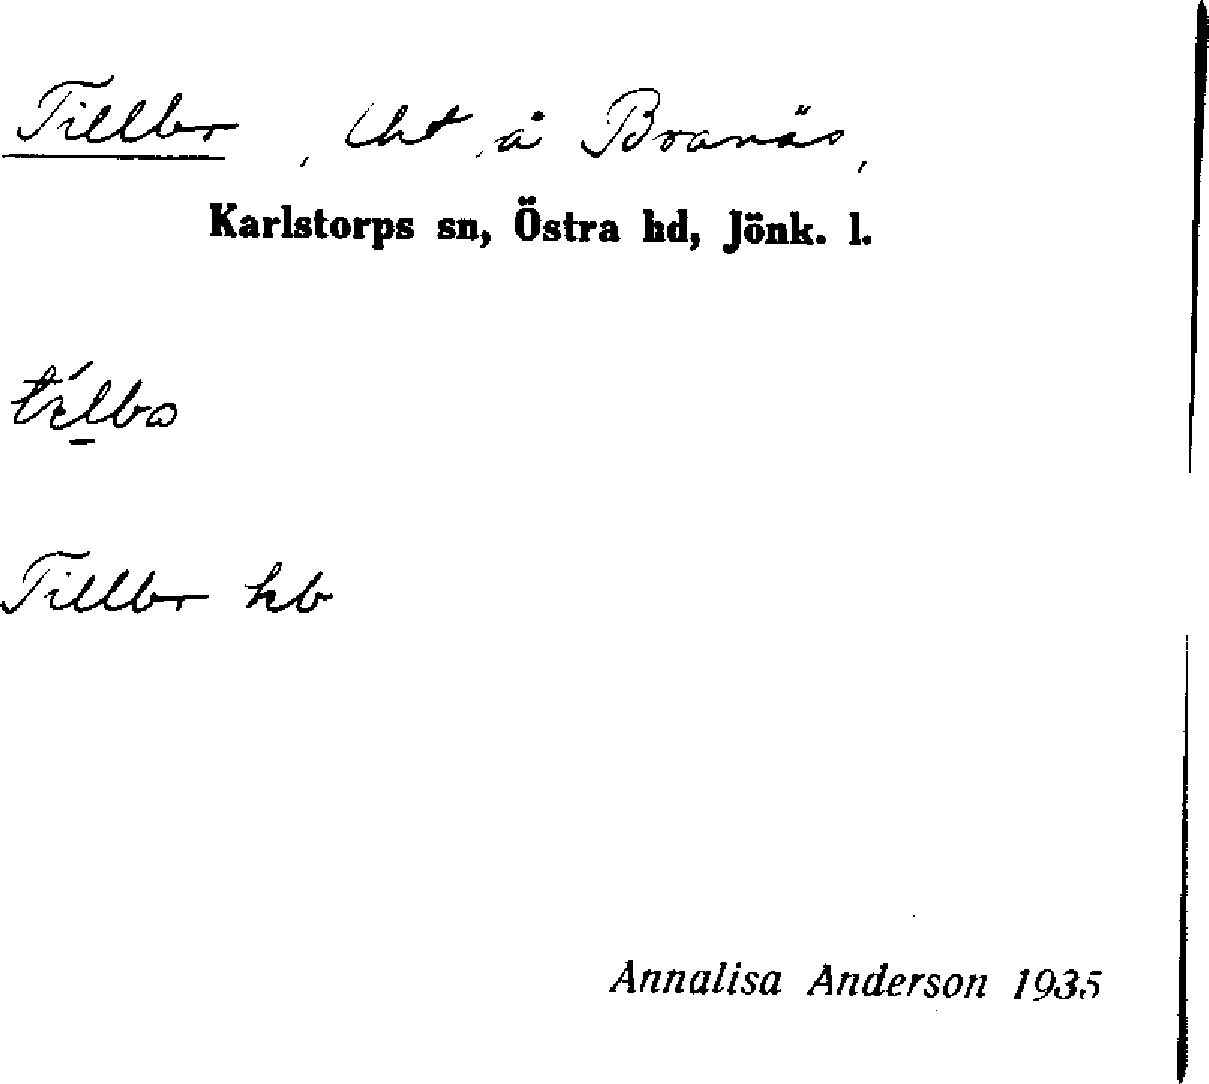 Tillbo, Lht å Branäs,
Karlstorps sn, Östra hd, Jönk. l.
Tillbo kb
Annalisa Anderson 1935